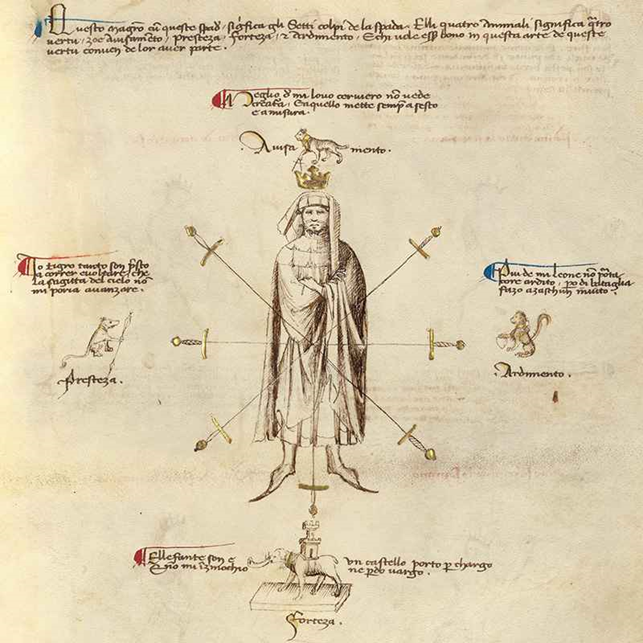 Questo magrō cū queste spad' significa gli Setti colpi de la spada. Elli quatro animali significa q̄tro
vertu, zoe Avisamēto, Presteza, Forteza, 2 Ardimento. E chi vole ess' bono in questa arte de queste
vertu conven de lor aver parte.
Meglio d' mi lovo cerviero nō vede
creat'a. E aquello mette semp' a sesto
e a misura.
Avisa mento.
Io tigro tanto son p'sto
a correr e voltare, che
la sagitta del cielo nō
mi poria avanzare.
Presteza.
Piu de mi leone nō porta
core ardito, po di bataglia
fazo a zaschun invito.
Ardimento.
Ellefante son e un castello porto p chargo
E nō mi īzinochio ne p'do vargo.
Forteza.